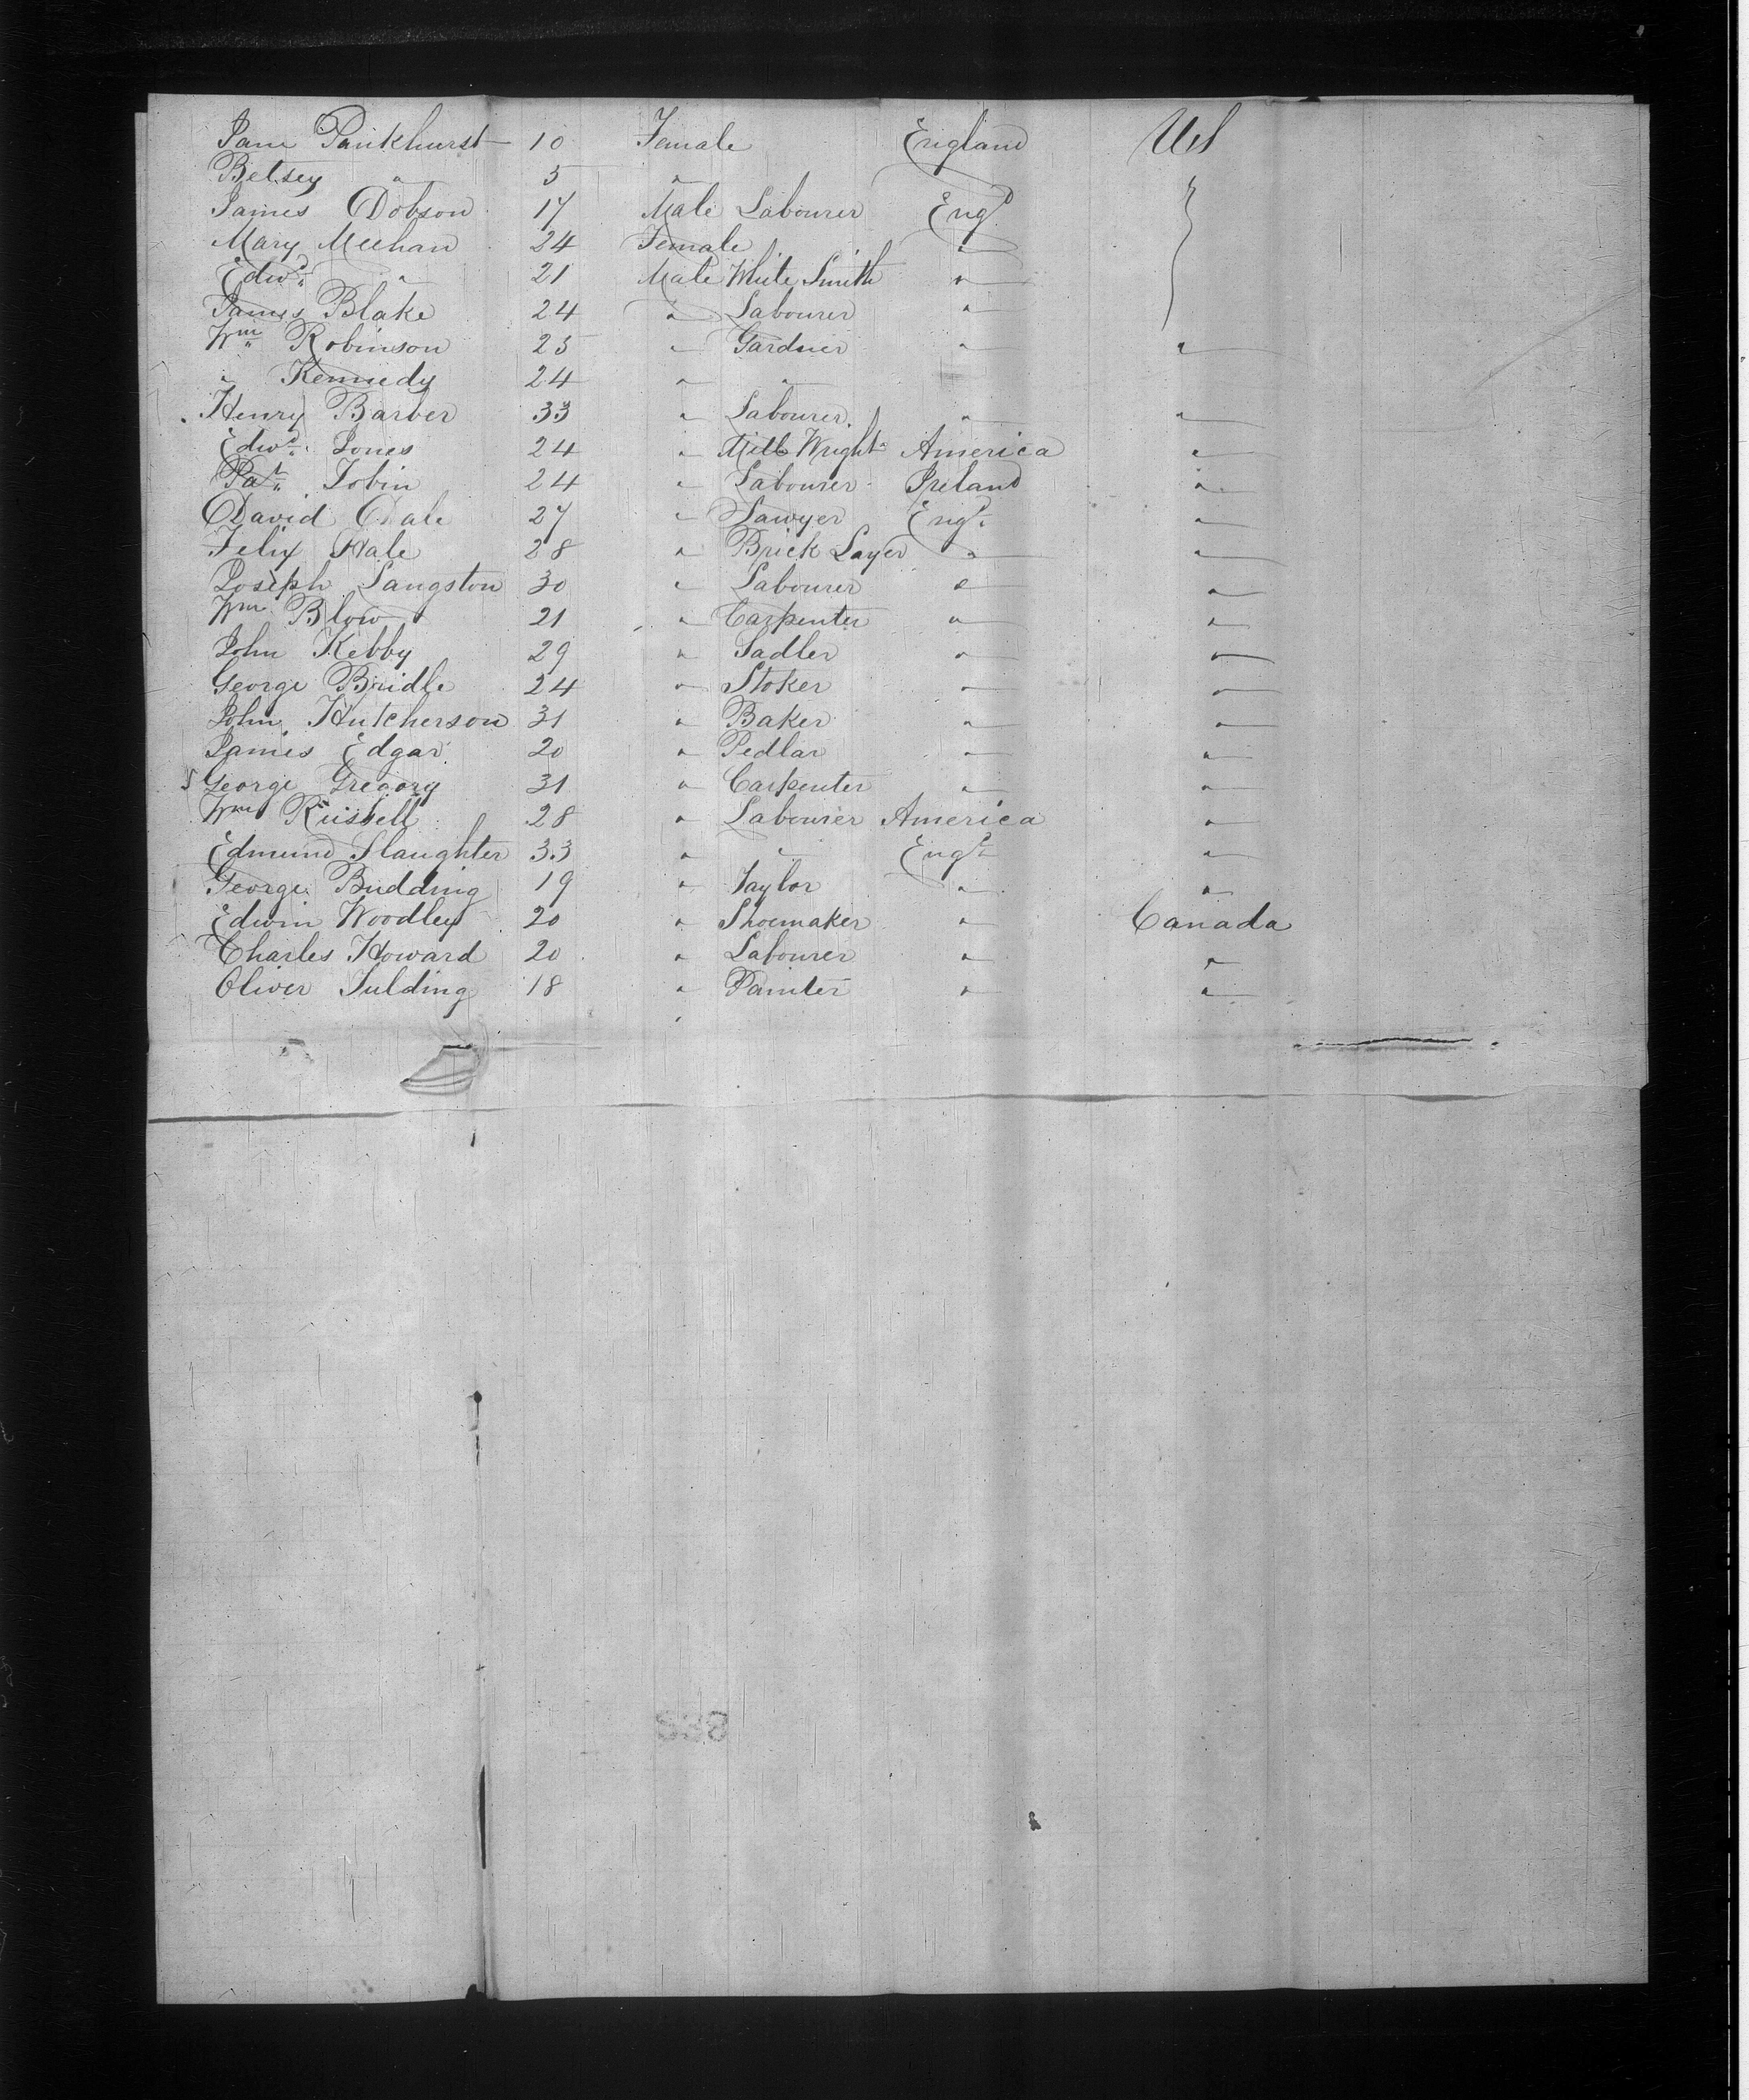 Jane Pankhurst 10 Female England US
Betsey " 5 "
James Dobson 17 Male Labourer Engd
Mary Meehan 24 Female "
Edwd " 21 Male White Smith "
James Blake 24 " Labourer "
Wm Robinson 25 " Gardner " "
" Kennedy 24 " "
Henry Barber 33 " Labourer " "
Edwd Jones 24 " Mill Wright America "
Pat Tobin 24 " Labourer Ireland "
David Dale 27 " Sawyer Engd "
Felix Hale 28 " Brick Layer " "
Joseph Langston 30 " Labourer " "
Wm Blow 21 " Carpenter " "
John Kebby 29 " Sadler " "
George Bridle 24 " Stoker " "
John Hutcherson 31 " Baker " "
James Edgar 20 " Pedlar " "
George Gregory 31 " Carpenter " "
Wm Russell 28 " Labourer America "
Edmund Slaughter 33 " " Engd "
George Budding 19 " Taylor " "
Edwin Woodley 20 " Shoemaker " Canada
Charles Howard 20 " Labourer " "
Oliver 18 " Painter " "